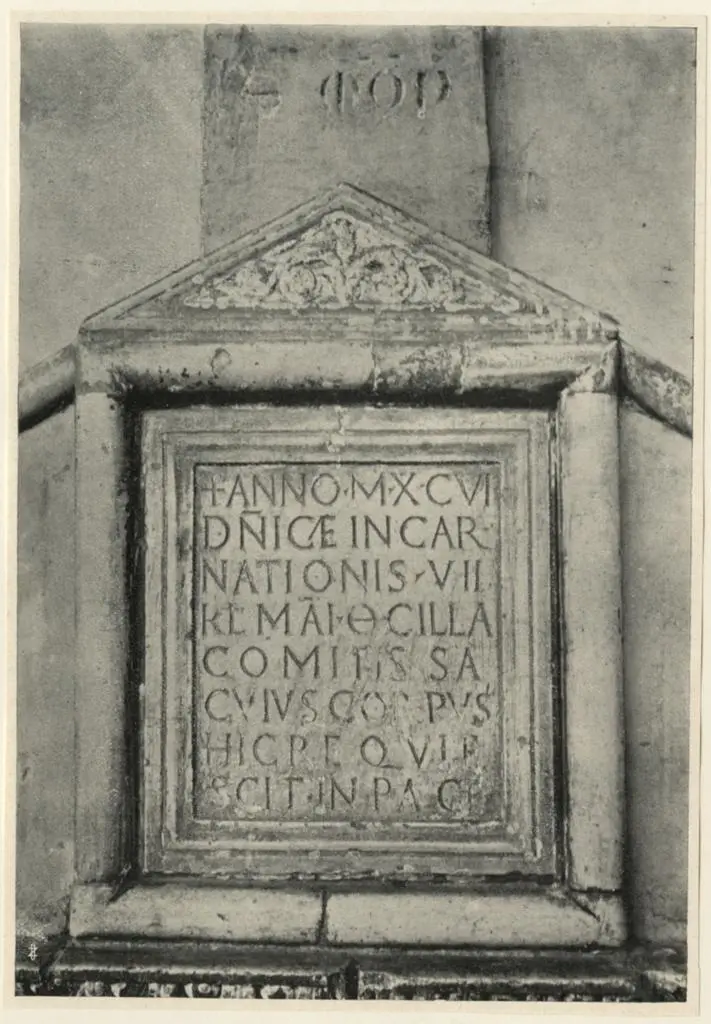 ΦΟΡ
+ANNO·M·XCVI
DÑICÆ INCAR
NATIONIS·VII
KL MĀI·Θ CILLA
COMITISSA
CVIVS CORPVS
HIC REQVIE
SCIT·IN PACE